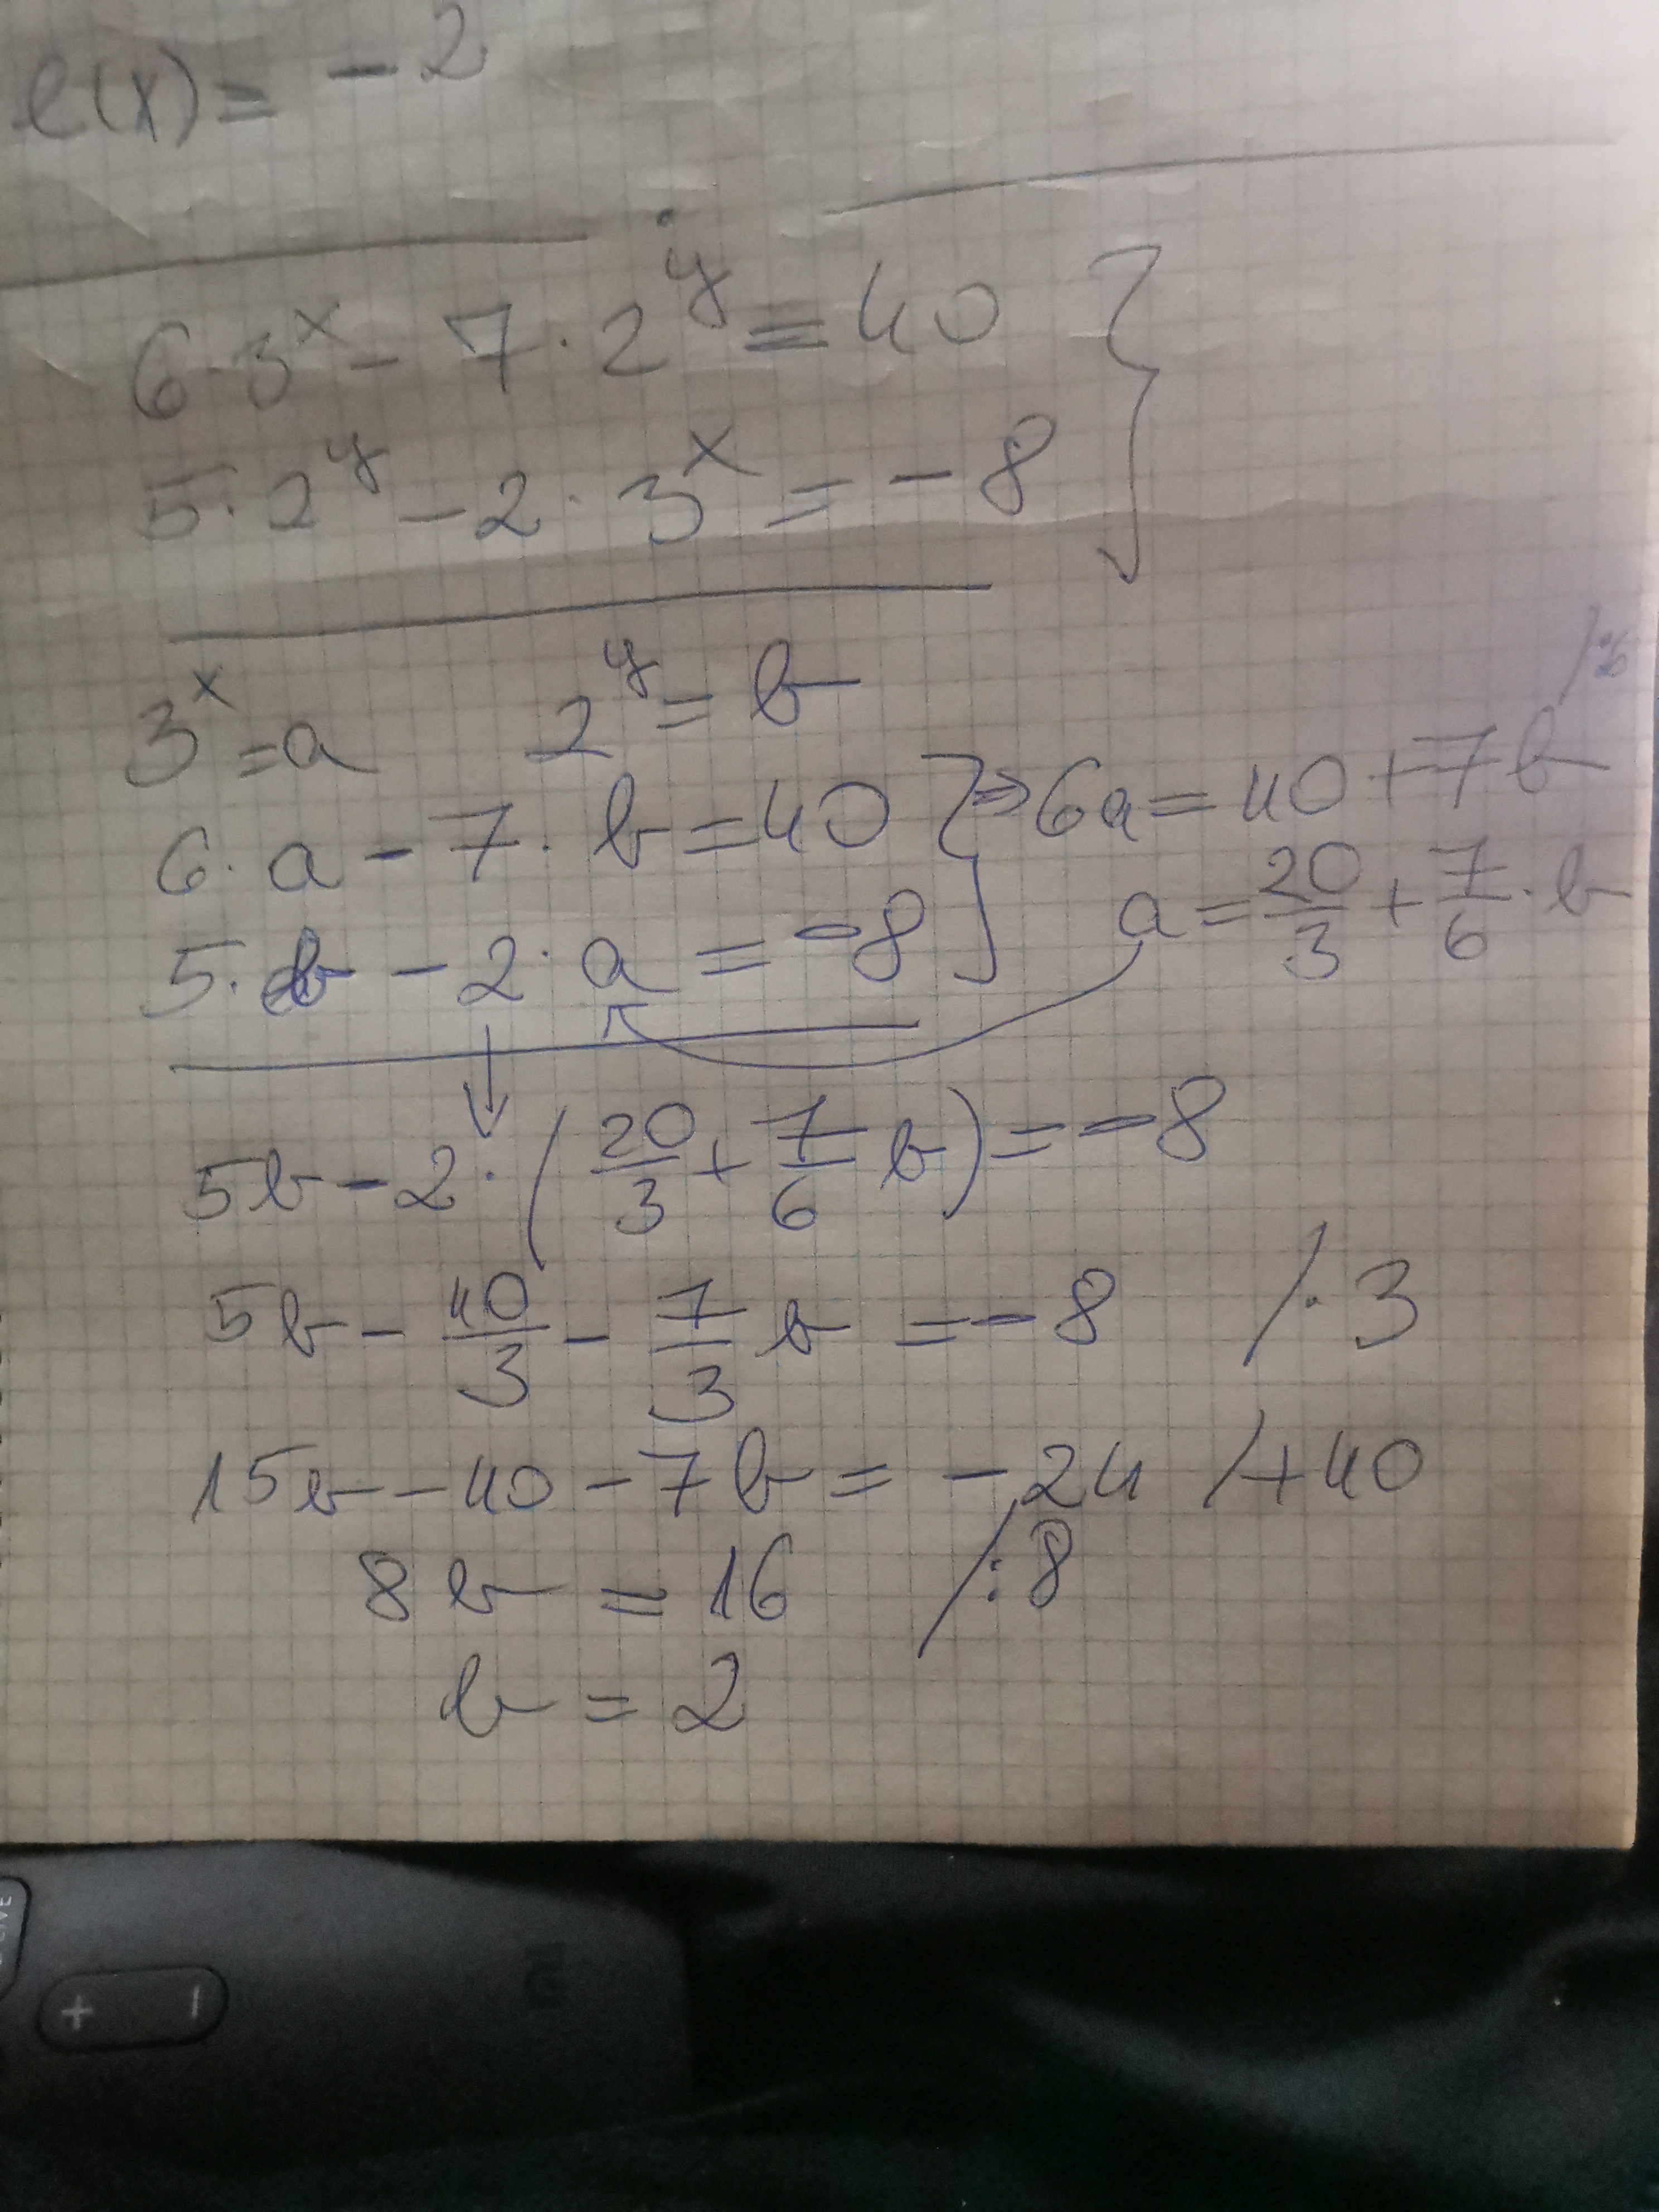 e(x) = -2
6·3^x - 7·2^y = 40 }
5·2^y - 2·3^x = -8
3^x = a  2^y = b  /:6
6·a - 7·b = 40 } ⇒ 6a = 40 + 7b
5·b - 2·a = -8  a = 20/3 + 7/6·b
↓
5b - 2·(20/3 + 7/6 b) = -8
5b - 40/3 - 7/3 b = -8  /·3
15b - 40 - 7b = -24  /+40
8b = 16  /:8
b = 2
LIVE
+ −